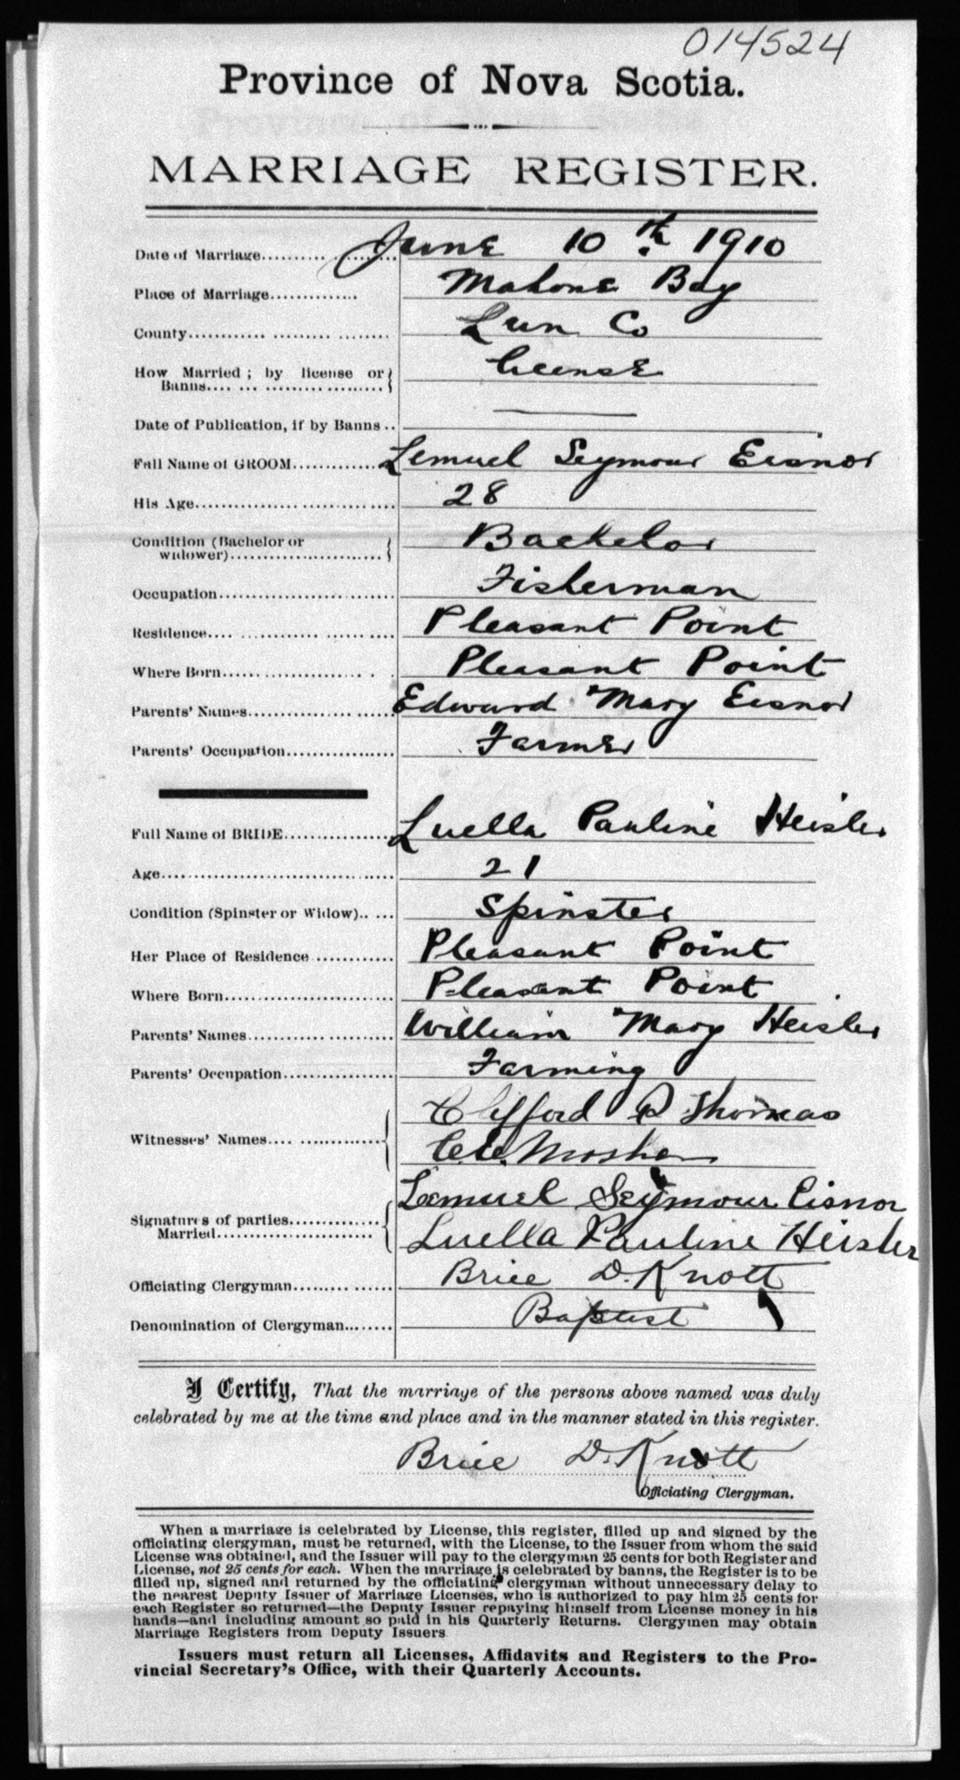 014524
Province of Nova Scotia.
MARRIAGE REGISTER.
Date of Marriage.......... June 10th 1910
Place of Marriage.............. Mahone Bay
County.............. Lun Co
How Married ; by license or Banns.... License
Date of Publication, if by Banns .. ———
Full Name of GROOM.............. Lemuel Seymour Eisnor
His Age.............. 28
Condition (Bachelor or widower).............. Bachelor
Occupation.............. Fisherman
Residence.............. Pleasant Point
Where Born.............. Pleasant Point
Parents' Names.............. Edward Mary Eisnor
Parents' Occupation.............. Farmer
Full Name of BRIDE.............. Luella Pauline Heisler
Age.............. 21
Condition (Spinster or Widow)...... Spinster
Her Place of Residence ............ Pleasant Point
Where Born.............. Pleasant Point
Parents' Names.............. William Mary Heisler
Parents' Occupation.............. Farming
Witnesses' Names.... .............. Clifford D Thomas
Mosher
Signatures of parties Married.............. Lemuel Seymour Eisnor
Luella Pauline Heisler
Officiating Clergyman.............. Brice D. Knott
Denomination of Clergyman........ Baptist
I Certify, That the marriage of the persons above named was duly
celebrated by me at the time and place and in the manner stated in this register.
Brice D. Knott
Officiating Clergyman.
When a marriage is celebrated by License, this register, filled up and signed by the
officiating clergyman, must be returned, with the License, to the Issuer from whom the said
License was obtained, and the Issuer will pay to the clergyman 25 cents for both Register and
License, not 25 cents for each. When the marriage is celebrated by banns, the Register is to be
filled up, signed and returned by the officiating clergyman without unnecessary delay to
the nearest Deputy Issuer of Marriage Licenses, who is authorized to pay him 25 cents for
each Register so returned—the Deputy Issuer repaying himself from License money in his
hands—and including amount so paid in his Quarterly Returns. Clergymen may obtain
Marriage Registers from Deputy Issuers
Issuers must return all Licenses, Affidavits and Registers to the Pro-
vincial Secretary's Office, with their Quarterly Accounts.